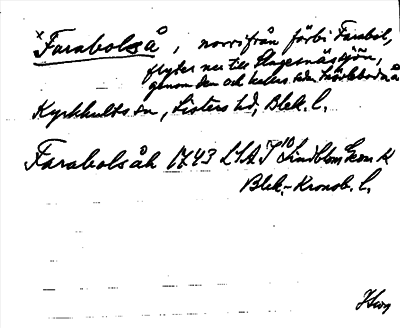 x Farabolså, norrifrån förbi Farabol,
flyter ner till Slagesnässjön,
genom den och kallas sedan
Kyrkhults sn, Listers hd, Blek. l.
Farabolsåh 1743 LSA J 10 Lindblom Geom. k
Blek.-Kronob. l.